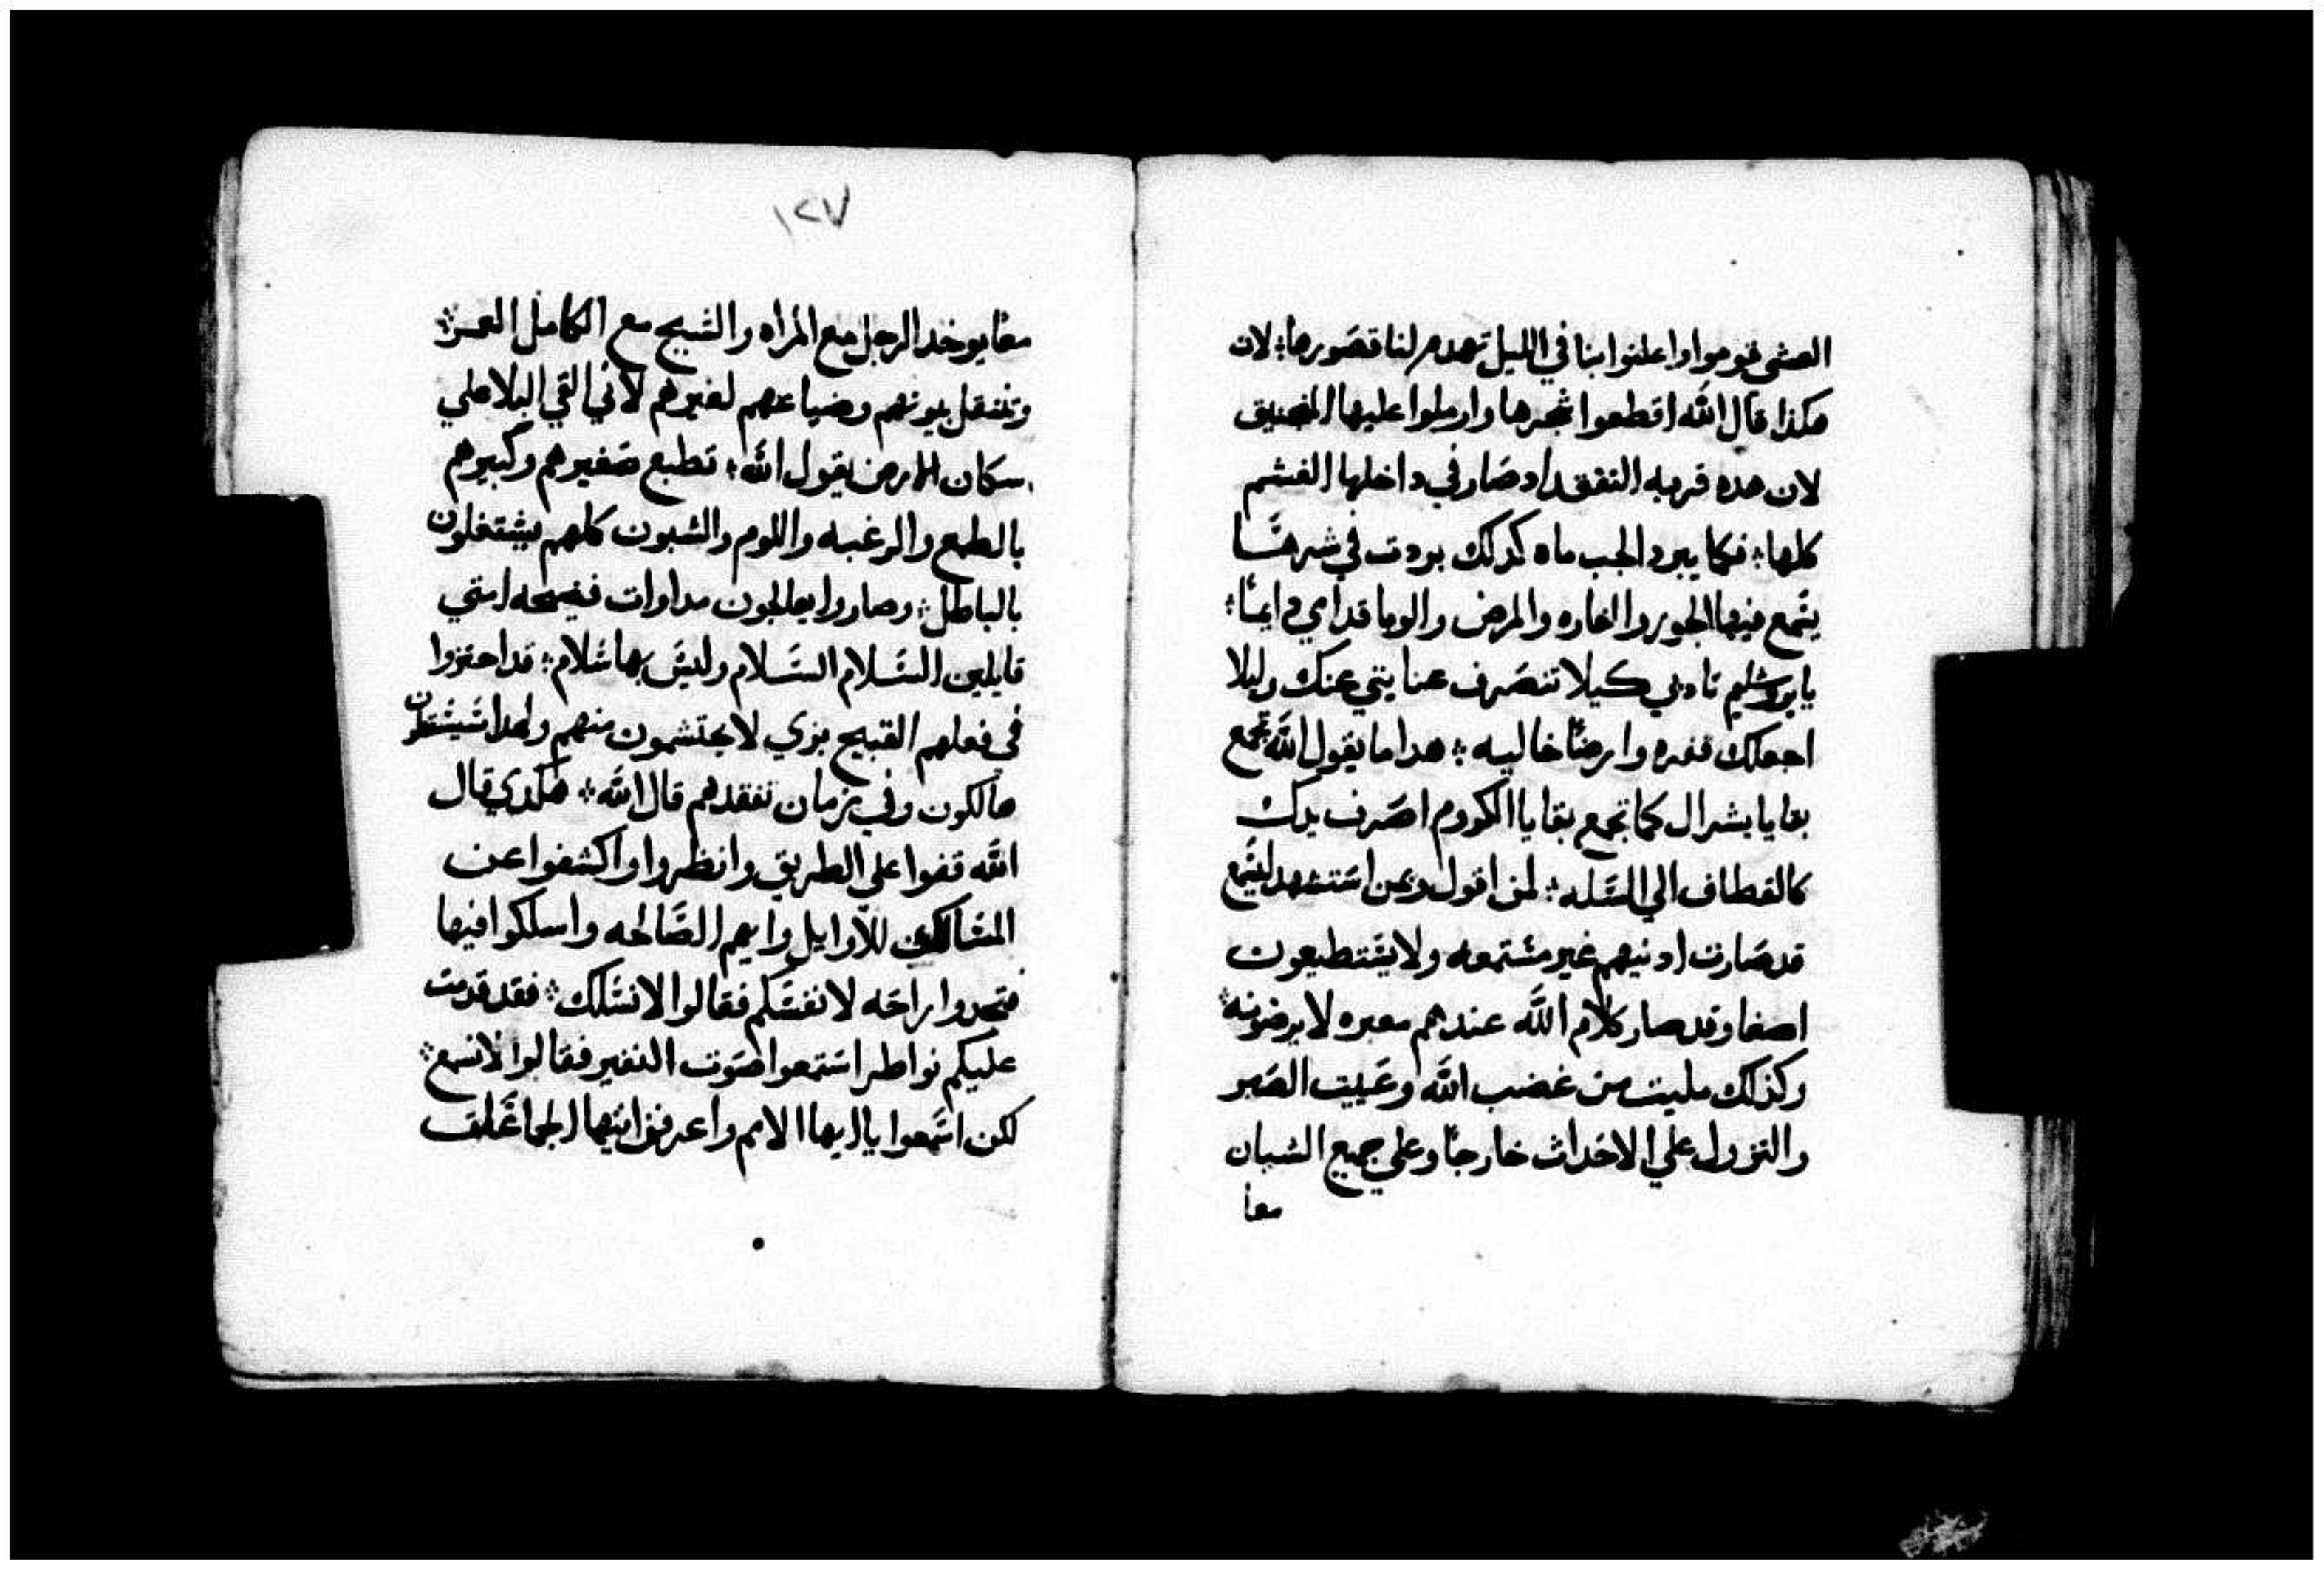 العشي قوموا واعلنوا بنا في الليل تهدم لنا قصورها؛ لان
هكذا قال الله اقطعوا شجرها وارملوا عليها المنجنيق
لان هده قريه التفقد اد صار في داخلها الغشم
كلها؛ فكما يبرد الجب ماه كدلك بردت في شرهتها
يتمع فيها الجور والغاره والمرض والوبا قدامي دايمًا؛
يايروشليم تادبي كيلا تنصرف عنايتي عنك وليلا
اجعلك قفره وارضًا خاليه؛ هدا ما يقول الله تجمع
بقايا يشرال كما تجمع بقايا الكروم اصرف يدك
كالقطاف الي السله؛ لمن اقول وبمن استشهد ليتمع
قد صارت ادنيهم غير مستمعه ولا يستطيعون
اصغا وقد صار كلام الله عندهم معيره لا يرضونه؛
وكذلك مليت من غضب الله وعييت الصبر
والنزول علي الاحداث خارجًا وعلي جميع الشبان
معا
١٢٧
معًا يوخد الرجل مع المراه والشيخ مع الكامل العمر؛
وتنتقل بيوتهم وضياعهم لغيرهم لاني القي البلا علي
سكان الارض يقول الله؛ تطبع صغيرهم وكبيرهم
بالطمع والرغبه واللوم والشبون كلهم يشتغلون
بالباطل؛ وصاروا يعالجون مداوات فضيحه امتي
قايلين السلام السلام وليس بها سلام؛ قد احتزوا
في فعلهم القبيح بزي لا يحتشمون منهم ولهدا سيسقطون
هالكون وفي زمان تفقدهم قال الله؛ هكدي قال
الله قفوا علي الطريق وانظروا واكشفوا عن
المسالك للاوايل وايهم الصالحه واسلكوا فيها
فتجدوا راحه لانفسكم فقالوا لا نسلك؛ فقد قدمت
عليكم نواطر استمعوا صوت النفير فقالوا لا نسمع؛
لكن اسمعوا يا ايها الامم واعرفن ايتها الجماعات